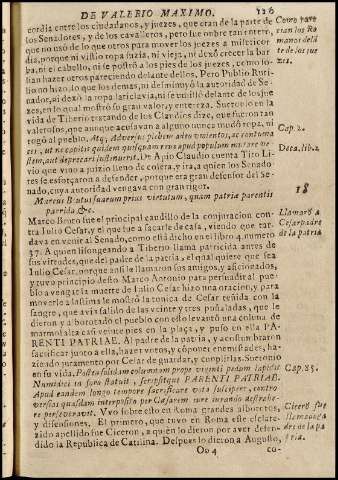 DE VALERIO MAXIMO. 126
cordia entre los ciudadanos, y juezes, que eran de la parte de
los Senadores, y de los cavalleros, pero fue onbre tan entero,
que no usó de lo que otros para mover los juezes a misericor
dia, porque ni vistio ropa suzia, ni vieja, ni dexó crecer la bar
ba, ni el cabello, ni se postró a los pies de los juezes, como so-
lian hazer otros pareciendo delante dellos. Pero Publio Ruti-
lio no hizo lo que los demas, ni desminuyó la autoridad de Se-
nador, ni dexò la ropa laticlavia, ni se umilló delante de los jue
zes, en lo qual mostró su gran valor, y entereza. Suetonio en la
vida de Tiberio tratando de los Claudios dize, que fueron tan
valerosos, que aunque acusavan a alguno nunca mudò ropa, ni
rogò al pueblo. Atq; Adversus plebem adeo violentos, ac contuma
ces, ut ne capitis quidem quisquam reus apud populum mutare ve
stem, aut deprecari sustinuerit. De Apio Claudio cuenta Tito Li
vio que vino a juizio lleno de colera, y ira, a quien los Senado
res se esforçaron a defender, porque era gran defensor del Se-
nado, cuya autoridad vengava con gran rigor.
Marcus Brutus suarum prius virtutum, quam patria parentis
parrida, &c.
Marco Bruto fue el principal caudillo de la conjuracion con-
tra Julio Cesar, y el que fue a sacarle de casa, viendo que tar-
dava en venir al Senado, como está dicho en el libro 4. numero
57. A quien lisongeando a Tiberio llama parricida antes de
sus virtudes, que del padre de la patria, el qual quiere que sea
Julio Cesar, porque ansi le llamaron sus amigos, y aficionados,
y tuvo principio desto Marco Antonio para persuadir al pue-
blo a vengar la muerte de Julio Cesar hizo una oracion, y para
moverle a lastima le mostró la tunica de Cesar teñida con la
sangre, que avia salido de las veinte y tres puñaladas, que le
dieron y alborotado el pueblo con esto levantò una coluna de
marmol alta casi veinte pies en la plaça, y puso en ella PA-
RENTI PATRIAE. Al padre de la patria, y acostunbraron
sacrificar junto a ella, hazer votos, y conponer enemistades, ha-
ziendo juramento por Cesar de guardar, y cunplirlas. Suetonio
en su vida. Postea solidam columnam prope viginti pedum lapidis
Numidici in foro statuit, scripsitque PARENTI PATRIAE.
Apud eandem longo tempore sacrificare vota suscipere, contro
versias quasdam interposito per Caesarem iure iurando destrahe-
re perseveravit. Uvo sobre esto en Roma grandes alborotos,
y disensiones. El primero, que tuvo en Roma este esclare-
zido apellido fue Ciceron, a quien lo dieron por aver defen-
dido la Republica de Catilina. Despues lo dieron a Augusto,
Oo 4 co-
Como pare
cian los Ro
manos delã
te de los jue
zes.
Cap. 2.
Deca. lib. 2
18
Llamarõ a
Cesar padre
de la patria
Cap. 85.
Cicerõ fue
llamado pa-
dre de la pa
tria.